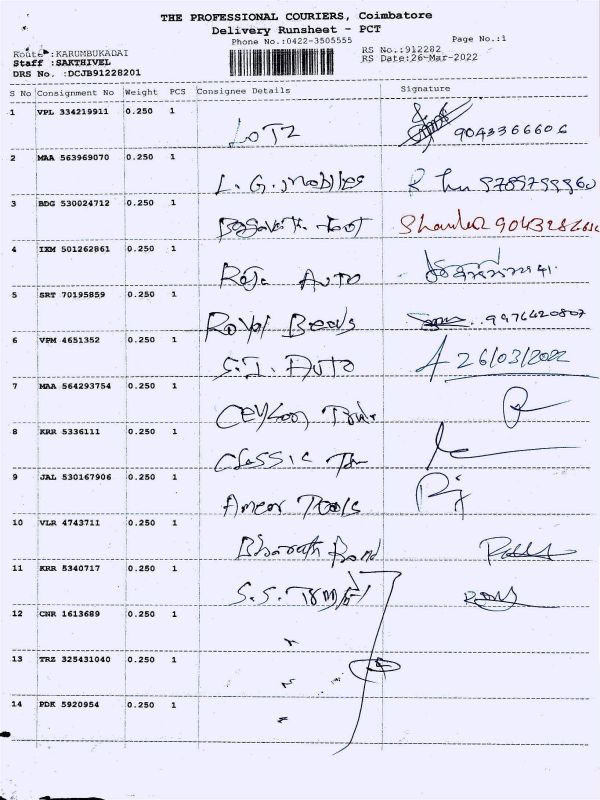 THE PROFESSIONAL COURIERS, Coimbatore
Delivery Runsheet - PCT
Phone No.:0422-3505555
Page No.:1
Route :KARUMBUKADAI
RS No.:912282
Staff :SAKTHIVEL
RS Date:26-Mar-2022
DRS No. :DCJB91228201
S No Consignment No Weight PCS Consignee Details Signature
1 VPL 334219911 0.250 1
LOTZ 9043366606
2 MAA 563969070 0.250 1
L.G. Mobiles
3 BDG 530024712 0.250 1
Shankar
4 IXM 501262861 0.250 1
Raja Auto
5 SRT 70195859 0.250 1
Royal Beeds 9976420807
6 VPM 4651352 0.250 1
S.I. AUTO 26/03/2022
7 MAA 564293754 0.250 1
Ceylon
8 KRR 5336111 0.250 1
Classic
9 JAL 530167906 0.250 1
Ameer Tools
10 VLR 4743711 0.250 1
Bharath Band
11 KRR 5340717 0.250 1
S.S.
12 CNR 1613689 0.250 1
13 TRZ 325431040 0.250 1
14 PDK 5920954 0.250 1